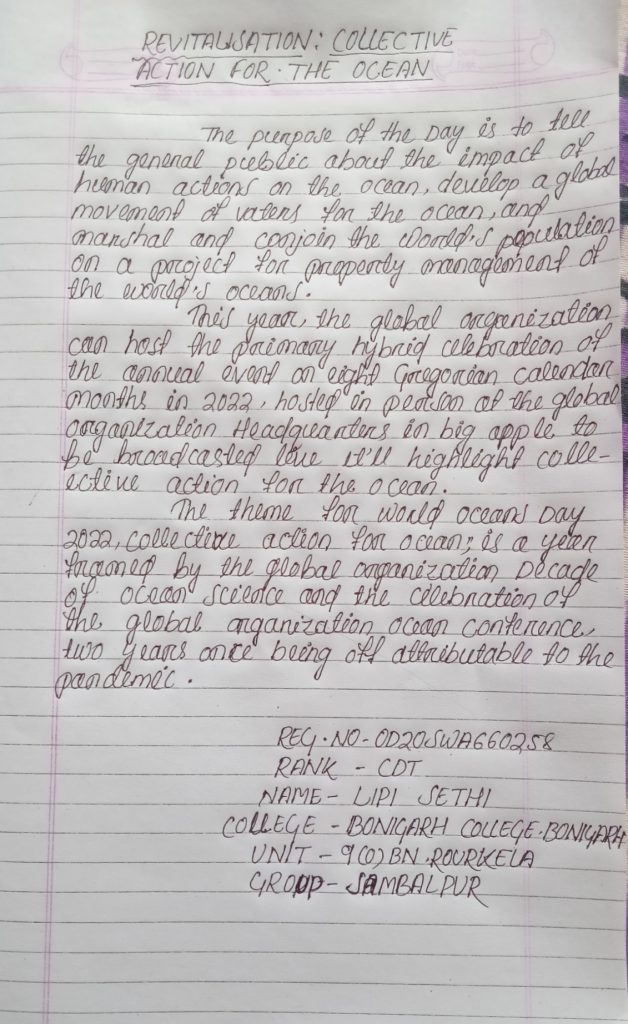 REVITALISATION: COLLECTIVE
ACTION FOR THE OCEAN
The purpose of the Day is to tell
the general public about the impact of
human actions on the ocean, develop a global
movement of vaters for the ocean, and
marshal and conjoin the world's population
on a project for property management of
the world's oceans.
This year, the global organization
can host the primary hybrid celebration of
the annual event on eight Gregorian calendar
months in 2022, hosted in person at the global
organization Headquarters in big apple to
be broadcasted live it'll highlight colle-
ective action for the ocean.
The theme for world oceans Day
2022, collective action for ocean; is a year
framed by the global organization Decade
of ocean science and the celebration of
the global organization ocean conference,
two years once being off attributable to the
pandemic.
REG.NO- OD20SWA660258
RANK - CDT
NAME - LIPI SETHI
COLLEGE - BONIGARH COLLEGE.BONIGARH
UNIT - 9(O)BN.ROURKELA
GROUP - SAMBALPUR